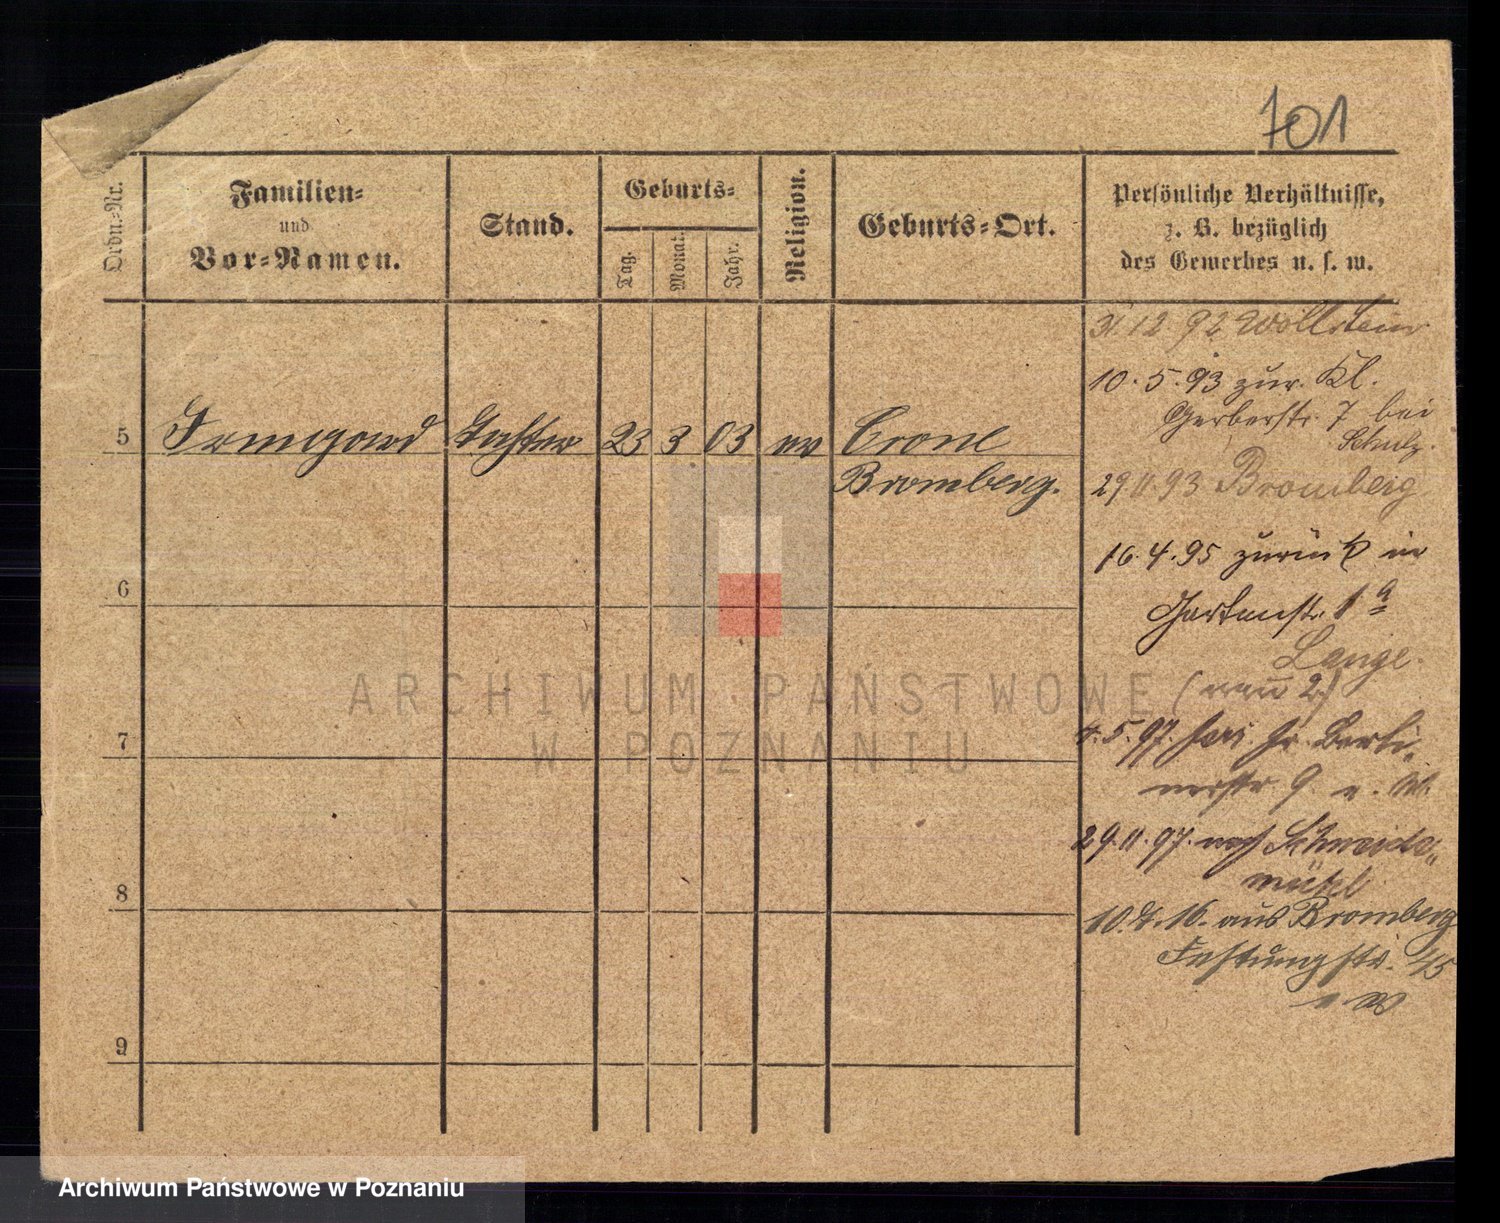 701
Ordn.-Nr.
Familien-
und
Vor-Namen.
Stand.
Geburts-
Tag.
Monat.
Jahr.
Religion.
Geburts-Ort.
Persönliche Verhältnisse,
z. B. bezüglich
des Gewerbes u. s. w.
5 Irmgard Tochter 23 3 03 ev Crone
Bromberg.
6
7
8
9
31 12 92 Wollstein
10. 5. 93 zur. Kl.
Gerberstr. 7 bei
Schulz.
29 11 93 Bromberg
16. 4. 95 zurück in
Gartenstr. 1 a
Lange.
5. 97. Gr. Berli-
nerstr 9
29. 11. 97. nach Schneide-
mühl
10. 16. aus Bromberg
Festungstr.
ARCHIWUM PAŃSTWOWE
W POZNANIU
Archiwum Państwowe w Poznaniu